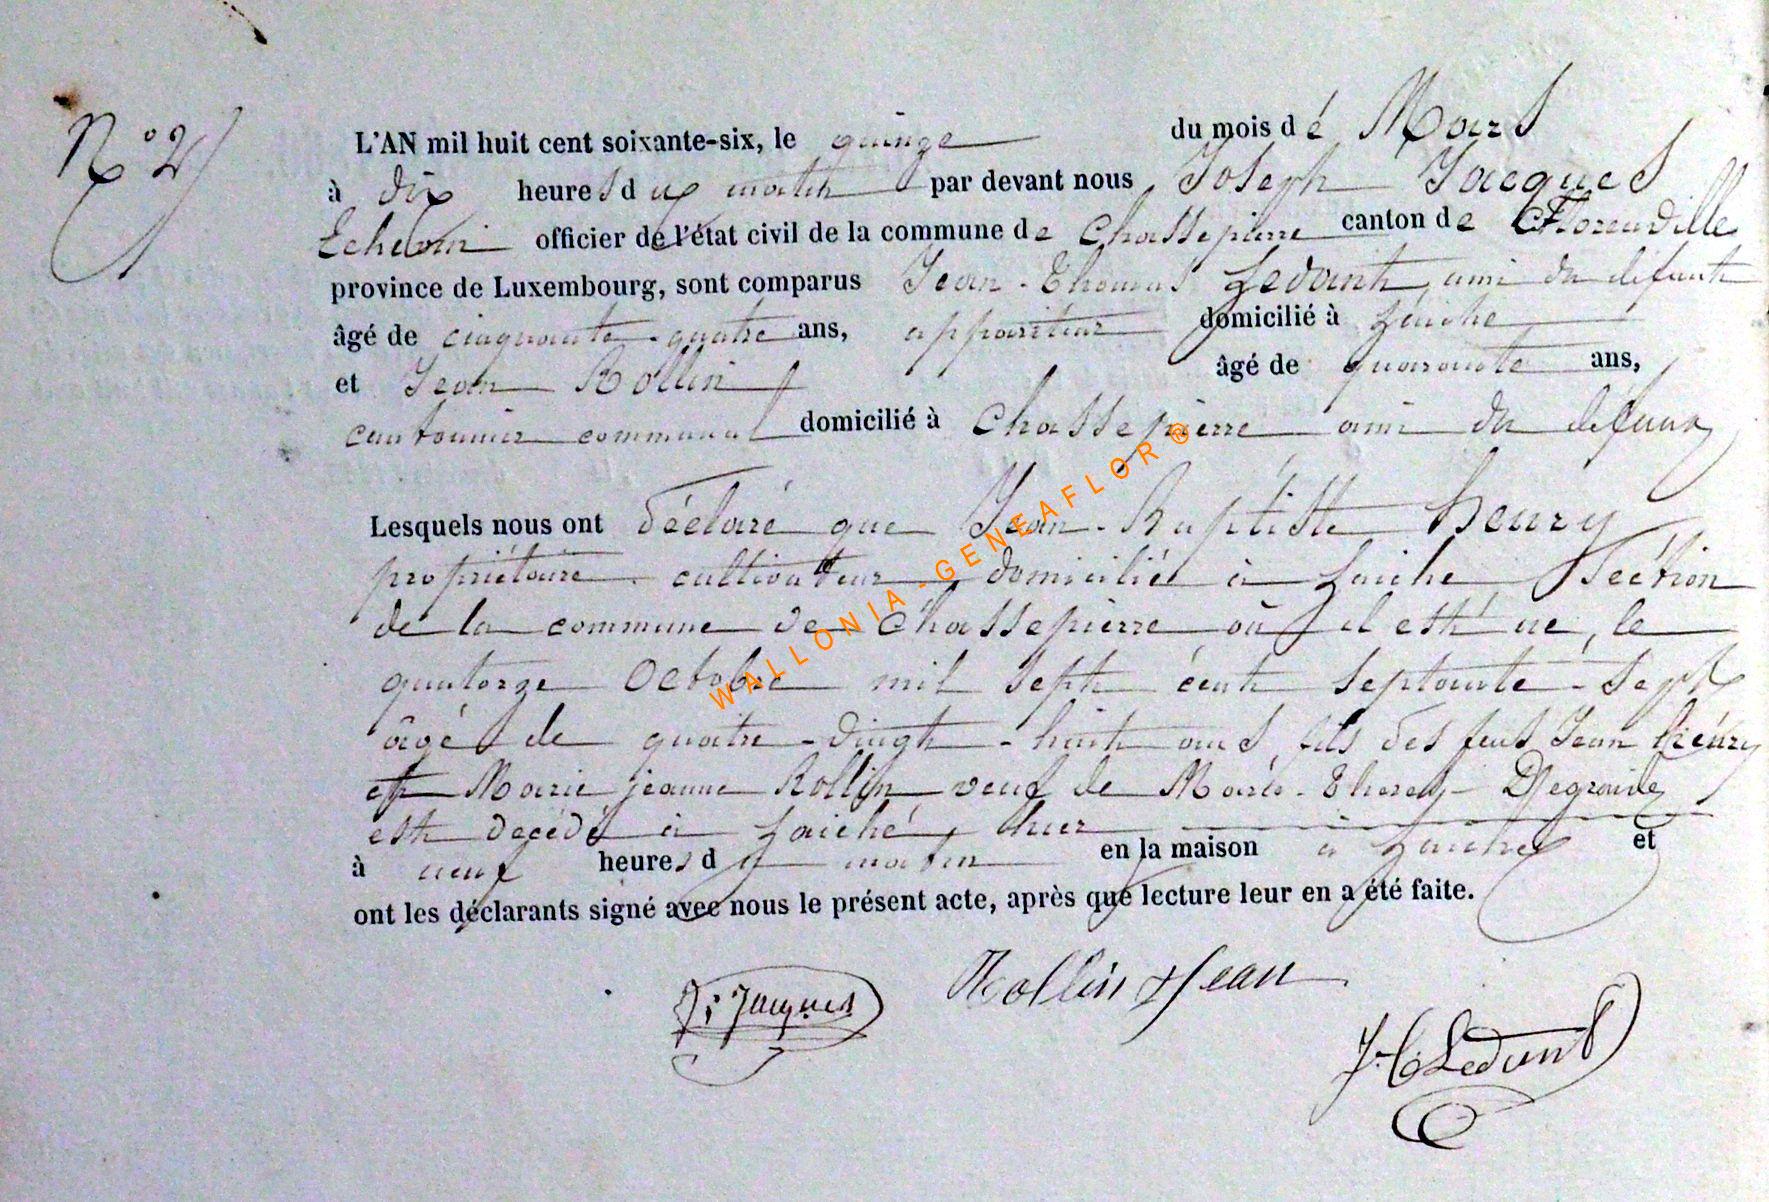 N° 2
L'AN mil huit cent soixante-six, le quinze du mois dé Mars
à dix heures du matin par devant nous Joseph Jacques
Echevin officier de l'état civil de la commune de Chassepierre canton de Florenville
province de Luxembourg, sont comparus Jean-Thomas Ledant, ami du défunt
âgé de cinquante-quatre ans, appariteur domicilié à Laiche
et Jean Rollin âgé de quarante ans,
cantonnier communal domicilié à Chassepierre ami du défunt
Lesquels nous ont déclaré que Jean-Baptiste henry
propriétaire cultivateur, domicilié à Laiche Section
de la commune de Chassepierre où il est né, le
quatorze Octobre mil sept cent septante-sept
âgé de quatre-vingt-huit ans fils des feus Jean henry
et Marie jeanne Rollin veuf de Marie-Therese
est décédé à Laiche, hier
à neuf heures du matin en la maison à Laiche et
ont les déclarants signé avec nous le présent acte, après que lecture leur en a été faite.
J. Jacques
Rollin Jean
J. T. Ledant
WALLONIA-GENEAFLOR®